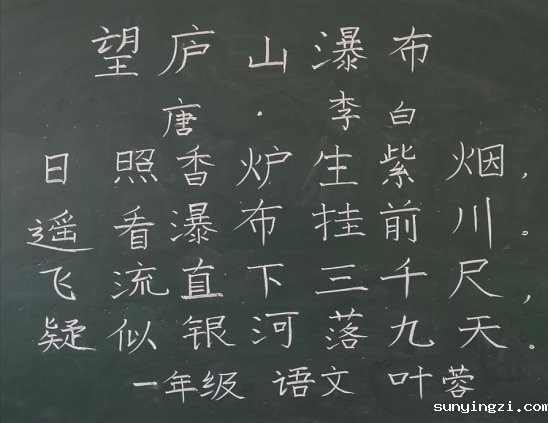 望庐山瀑布
唐·李白
日照香炉生紫烟,
遥看瀑布挂前川。
飞流直下三千尺,
疑似银河落九天。
一年级 语文 叶蓉
sunyingzi.com